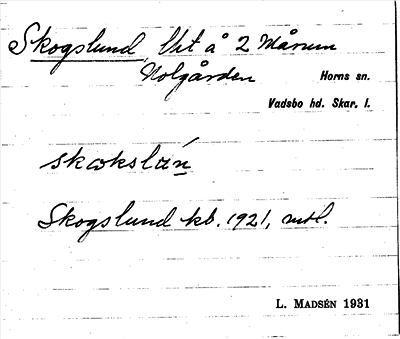 Skogslund, lht å 2 Mårum
Nolgården Horns sn.
Vadsbo hd. Skar. l.
skɷkslán
Skogslund kb. 1921, mtl.
L. MADSÉN 1931